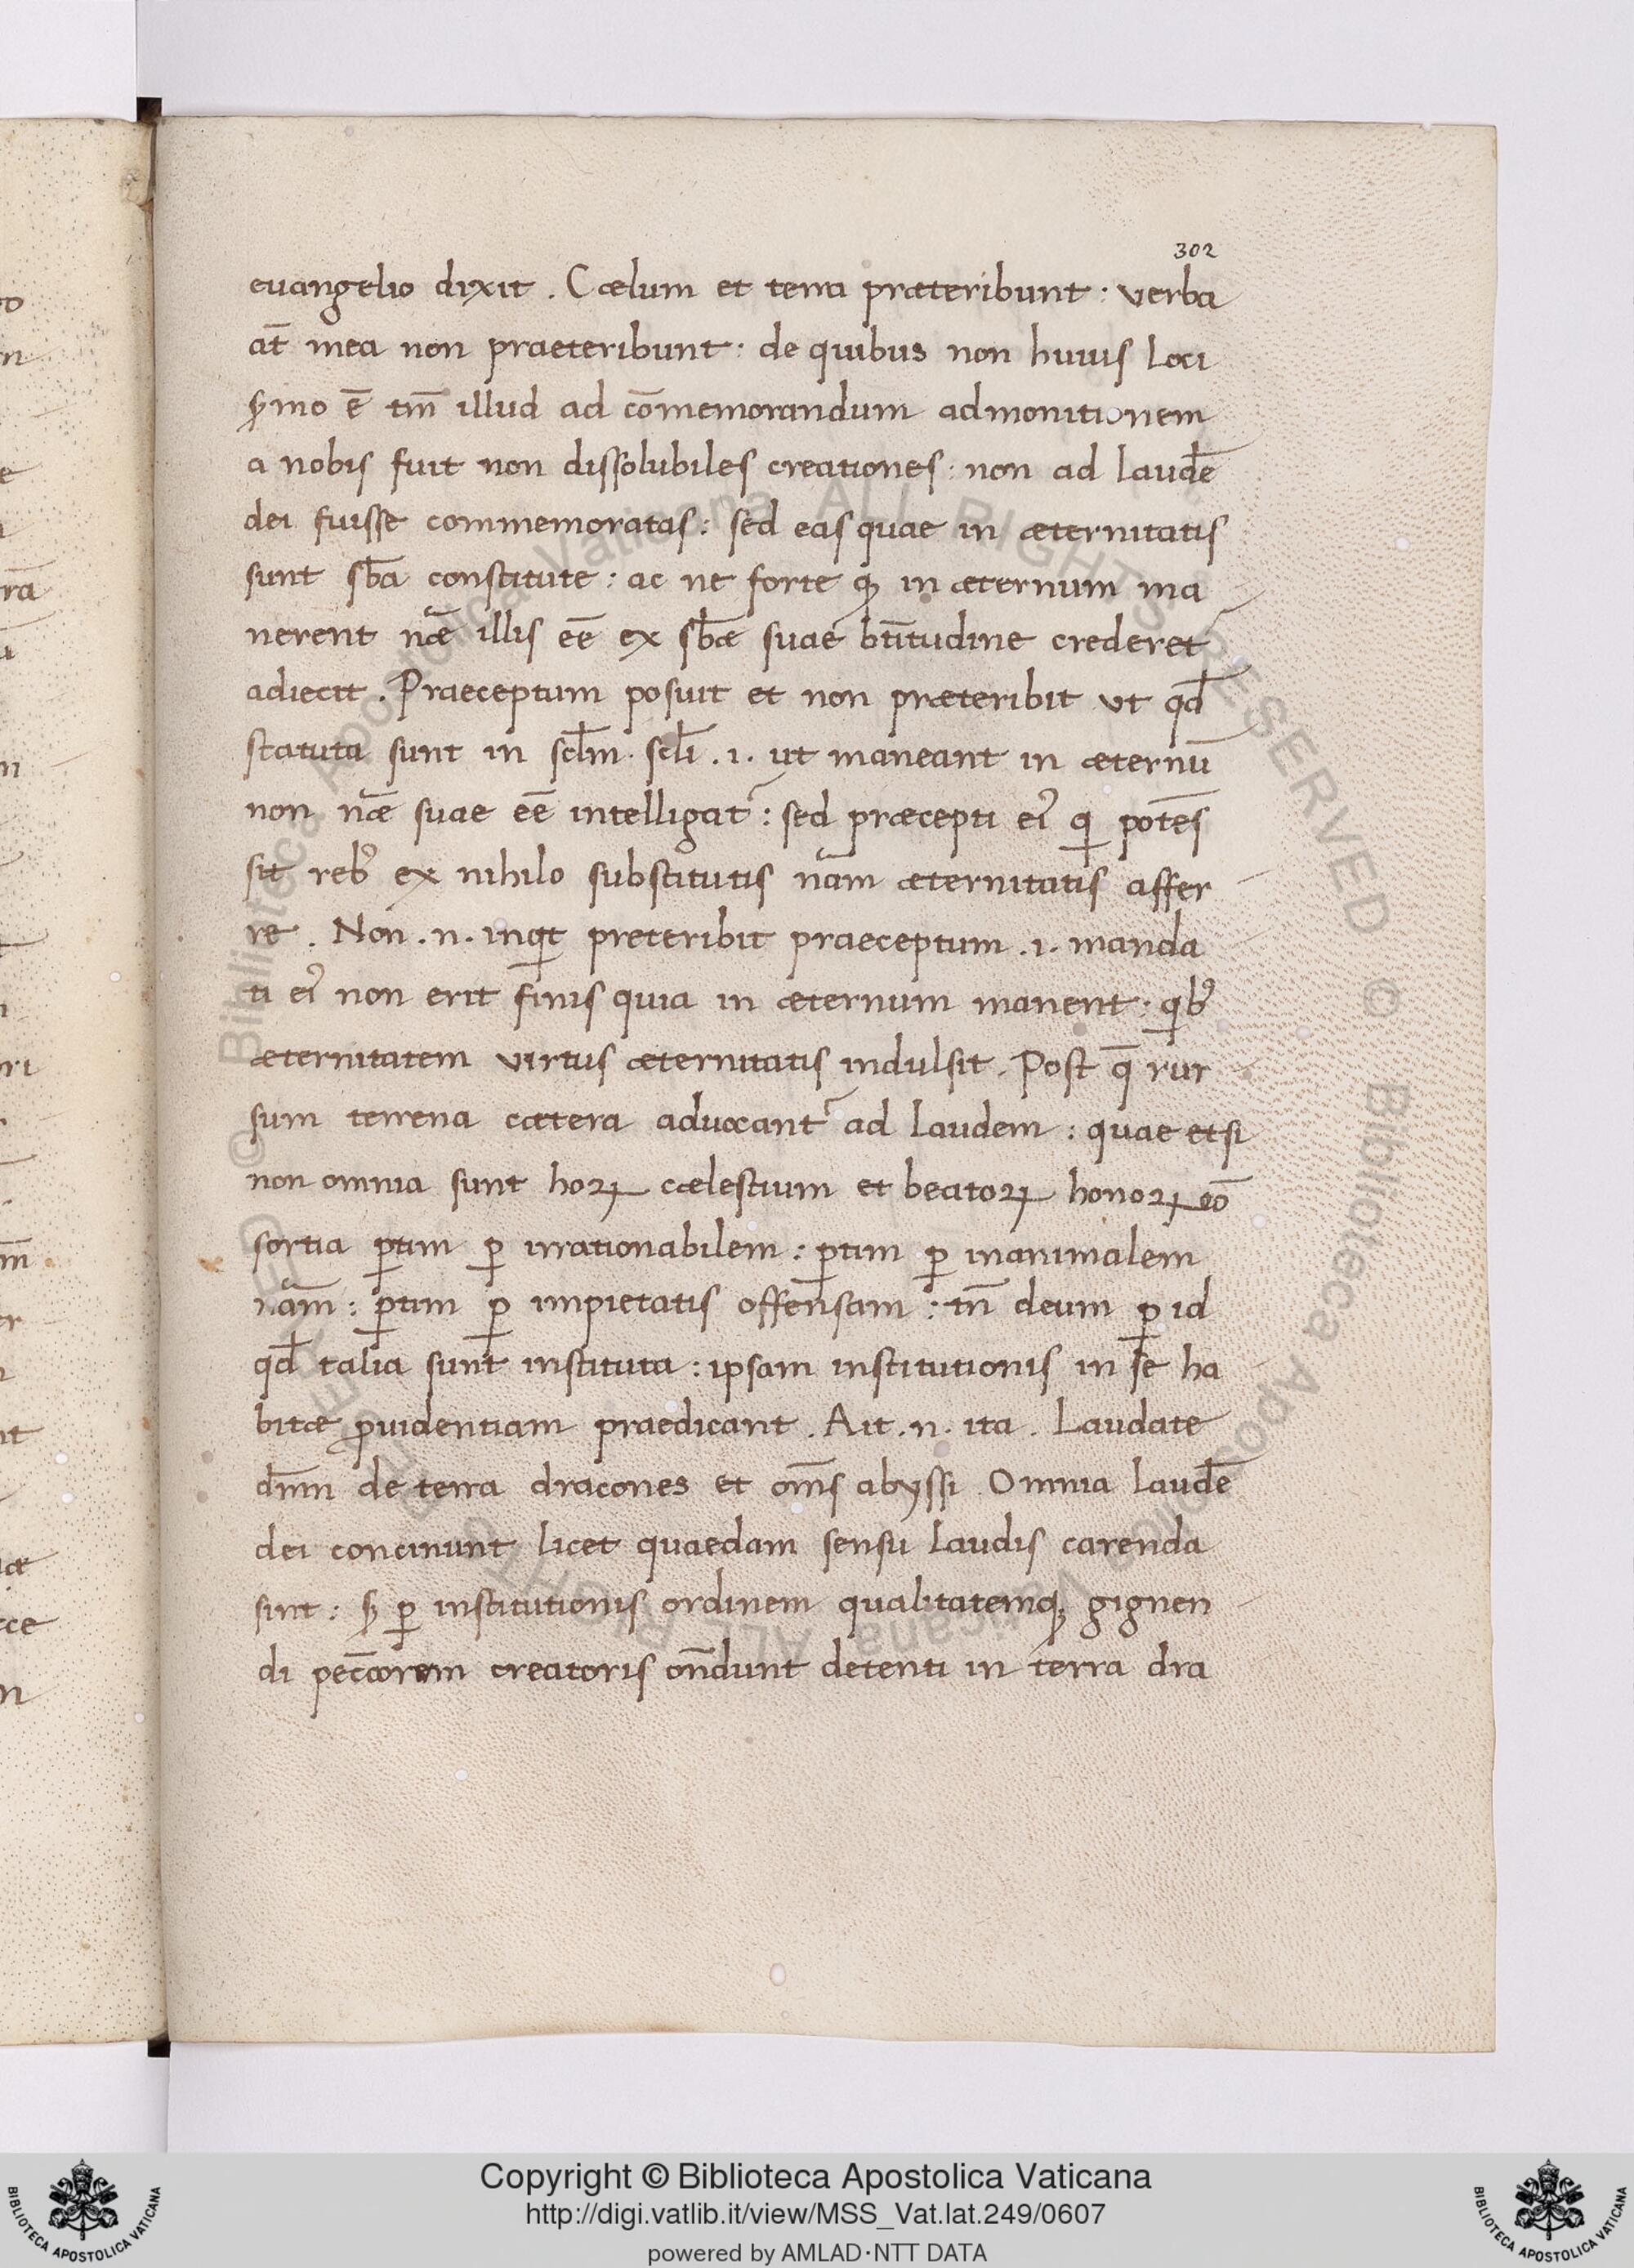 302
euangelio dixit . Cælum et terra præteribunt : verba
at̄ mea non praeteribunt : de quibus non huius loci
ẜmo ē tm̄ illud ad cōmemorandum admonitionem
a nobis fuit non dissolubiles creationes : non ad laudē
dei fuisse commemoratas : sed eas quae in æternitatis
sunt sb̄a constitute : ac ne forte ꝙ in æternum ma
nerent nāe illis eē ex sb̄æ suae bt̄itudine crederet᷑
adiecit . Praeceptum posuit et non præteribit vt qd̄
statuta sunt in scl̄m . scl̄i . i . ut maneant in æternū
non nāe suae eē intelligat᷑ : sed præcepti ei᾽ qi potēs
sit reb᾽ ex nihilo substitutis nām æternitatis affer
re . Non . n . inqit preteribit praeceptum . i . manda
ti ei᾽ non erit finis quia in æternum manent : qib᾽
æternitatem virtus æternitatis indulsit . Post q̄ rur
sum terrena cætera aduocant᷑ ad laudem : quae etsi
non omnia sunt hoꝝ cælestium et beatoꝝ honoꝝ cō
sortia ꝑtim ꝑ irrationabilem : ꝑtim ꝑ inanimalem
nām : ꝑtim ꝑ impietatis offensam : tn̄ deum ꝑ id
qd̄ talia sunt instituta : ipsam institutionis in se ha
bitæ ꝓuidentiam praedicant . Ait . n . ita . Laudate
dn̄m de terra dracones et om̄s abyssi . Omnia laudē
dei concinunt licet quaedam sensu laudis carenda
sint : ẜ ꝑ institutionis ordinem qualitatemqꝫ gignen
di creatoris on̄dunt detenti in terra dra
Copyright © Biblioteca Apostolica Vaticana
http://digi.vatlib.it/view/MSS_Vat.lat.249/0607
powered by AMLAD·NTT DATA
BIBLIOTECA APOSTOLICA VATICANA
BIBLIOTECA APOSTOLICA VATICANA